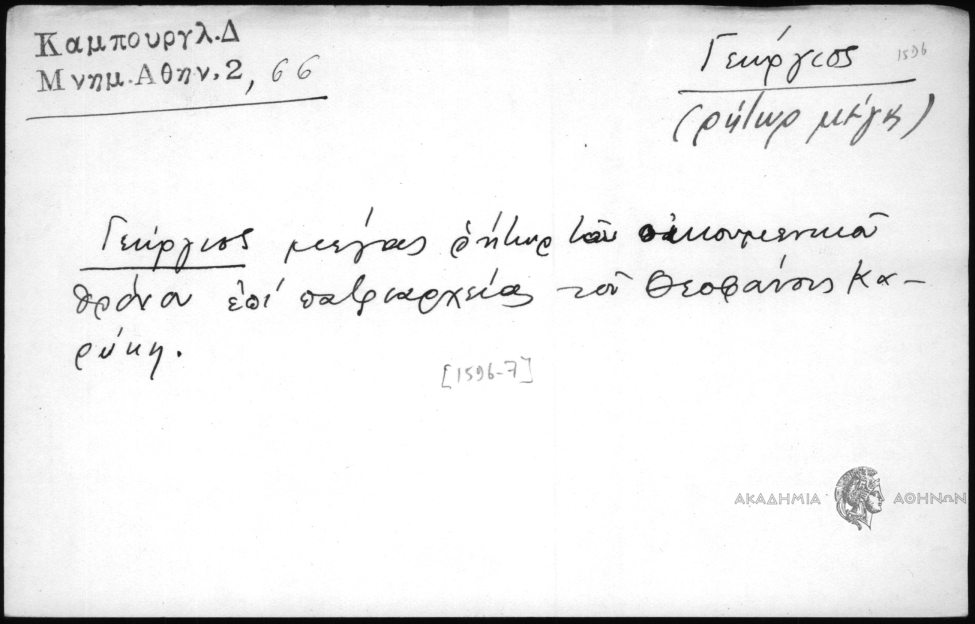 Καμπουργλ.Δ
Μνημ.Αθην.2, 66
Γεώργιος 1596
(ρήτωρ μέγας)
Γεώργιος μέγας ῥήτωρ τοῦ οἰκουμενικοῦ
θρόνου ἐπί πατριαρχείας τοῦ Θεοφάνους Κα-
ρύκη.
[1596-7]
ΑΚΑΔΗΜΙΑ ΑΘΗΝΩΝ